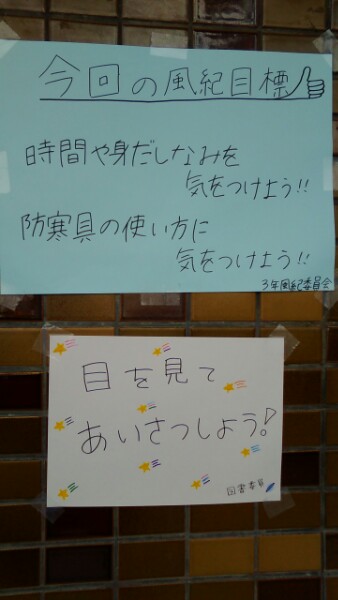 今回の風紀目標
時間や身だしなみを
気をつけよう!!
防寒具の使い方に
気をつけよう!!
3年風紀委員会
目を見て
あいさつしよう!
図書委員